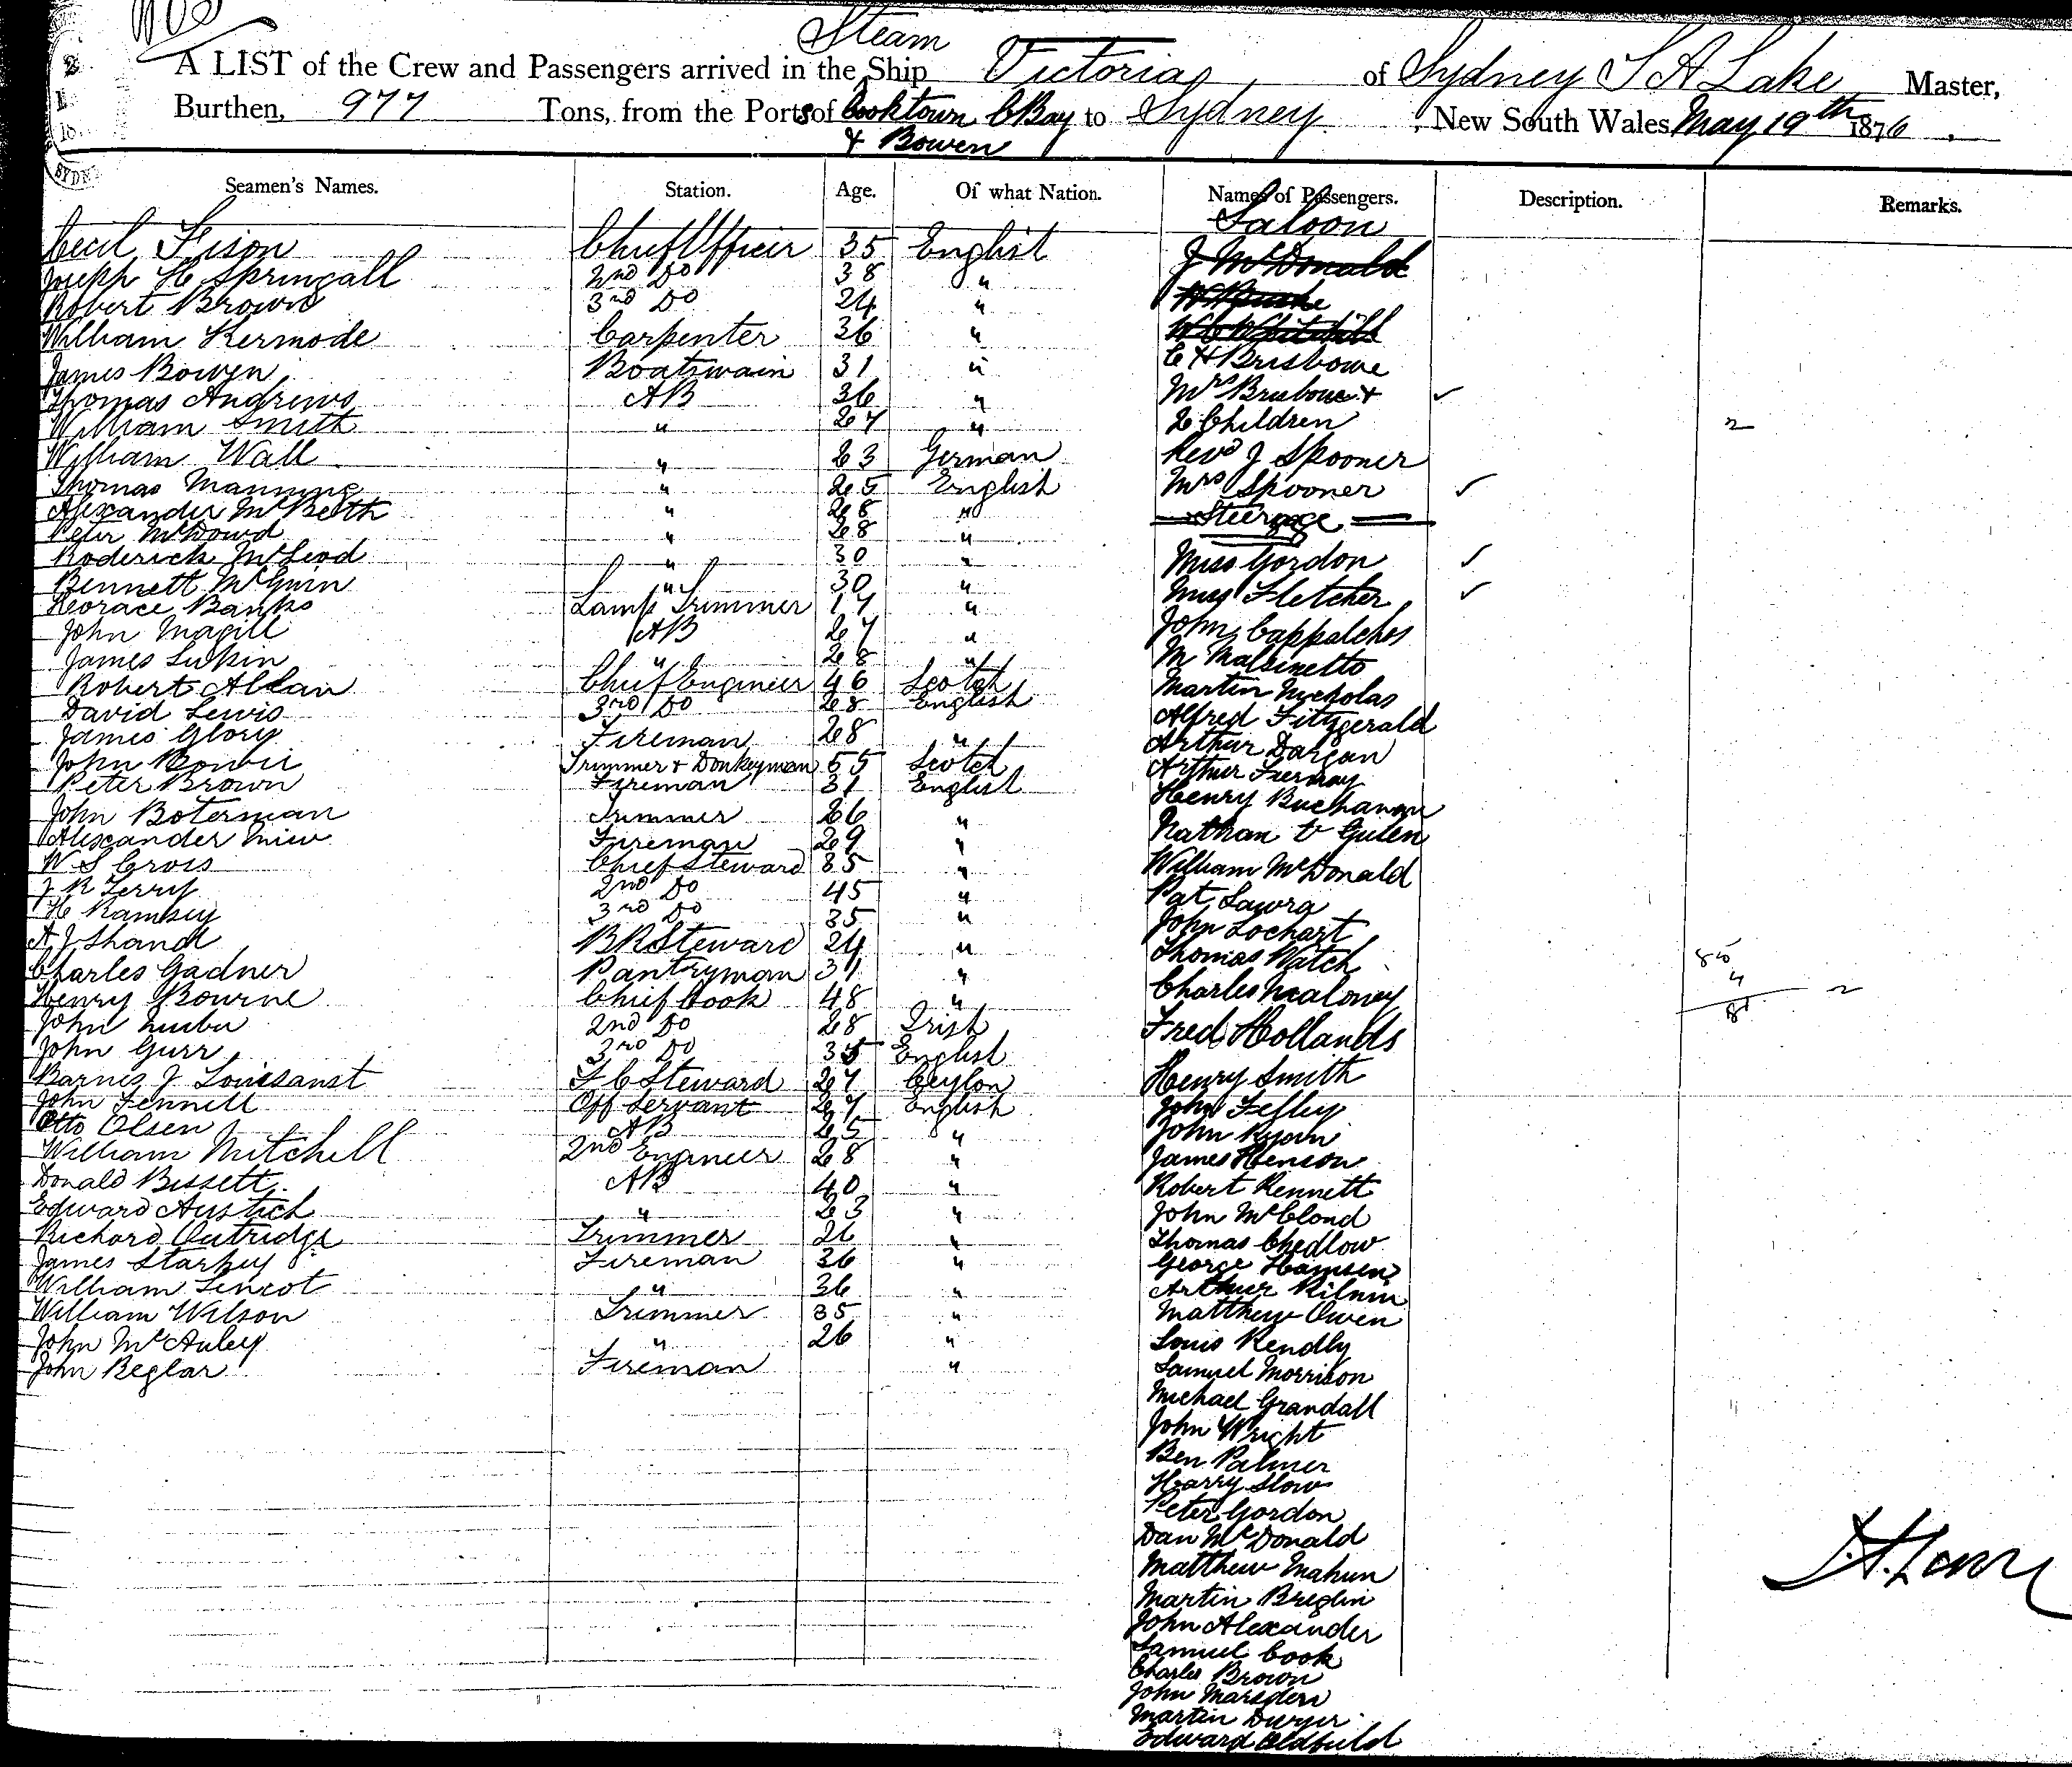 Steam
A LIST of the Crew and Passengers arrived in the Ship Victoria, of Sydney T A Lake Master,
Burthen, 977 Tons, from the Ports of Cooktown C Bay to Sydney, New South Wales, May 19th 1876.
& Bowen
Seamen's Names. Station. Age. Of what Nation. Names of Passengers. Description. Remarks.
Saloon
Cecil Fison Chief Officer 35 English J McDonald
Joseph H Springall 2nd Do 38 "
Robert Brown 3rd Do 24 "
William Kermode Carpenter 36 " C H Brisbowe
James Bowen Boatswain 31 " Mrs Brisbowe & ✓
Thomas Andrews AB 36 " 2 Children 2
William Smith " 27 " Revd J Spooner
William Wall " 23 German Mrs Spooner ✓
Thomas Manning " 25 English Steerage
Alexander McBeth " 28 "
Peter McDowd " 28 "
Roderick McLeod " 30 " Miss Gordon ✓
Bennett McGuin " 30 " Miss Fletcher ✓
Horace Banks Lamp Trimmer 17 " John Cappalches
John Magill AB 27 " M Malsinetto
James Lukin " 28 " Martin Nicholas
Robert Allan Chief Engineer 46 Scotch Alfred Fitzgerald
David Lewis 3rd Do 28 English Arthur Dargan
James Glory Fireman 28 " Arthur
John Bowie Trimmer & Donkeyman 55 Scotch Henry Buchanan
Peter Brown Fireman 31 English Nathan
John Boterman Trimmer 26 " William McDonald
Alexander Fireman 29 " Pat Lawra
W S Cross Chief Steward 35 " John Lochart
J R Terry 2nd Do 45 " Thomas Watch
H Ramsey 3rd Do 35 " Charles Maloney
A J Shand BR Steward 24 " Fred Hollands
Charles Gadner Pantryman 31 " Henry Smith
Henry Bourne Chief Cook 48 "
John 2nd Do 28 Irish John Ryan
John Gurr 3rd Do 35 English James Henson
Barnes J Louisanst F C Steward 27 Ceylon Robert Kennett
John Fennell Off Servant 27 English John McCloud
Otto Olsen AB 25 " Thomas Chedlow
William Mitchell 2nd Engineer 28 " George Hamsen
Donald Bissett AB 40 " Arthur
Edward Austich " 23 " Matthew Owen
Richard Outridge Trimmer 26 " Louis Rendly
James Starkey Fireman 36 " Samuel Morrison
William " 36 " Michael Grandall
William Wilson Trimmer 35 " John Wright
John McAuley " 26 " Ben Palmer
John Beglar Fireman " Harry Slow
Peter Gordon
Dan McDonald
Matthew Mahun
Martin Breglin
John Alexander
Samuel Cook
Charles Brown
John Marsden
Martin Dwyer
Edward Oldfield